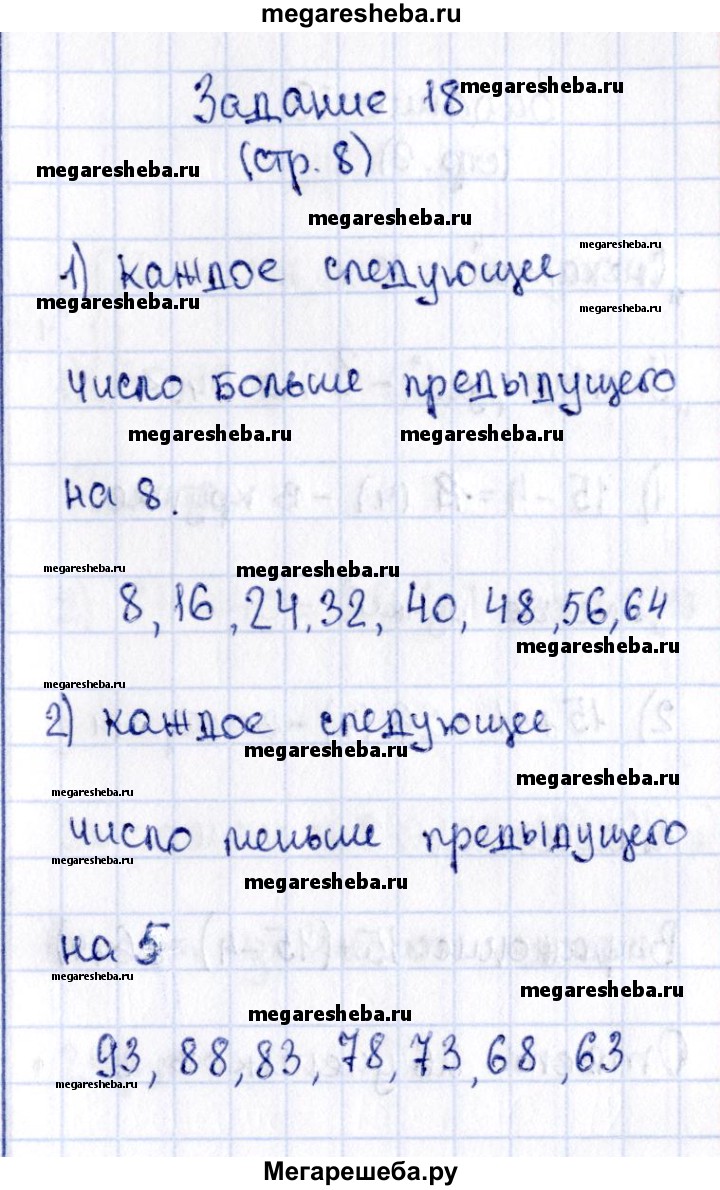 megaresheba.ru
Задание 18
megaresheba.ru
megaresheba.ru
(стр. 8)
megaresheba.ru
megaresheba.ru
1) каждое следующее
megaresheba.ru
megaresheba.ru
число больше предыдущего
megaresheba.ru
megaresheba.ru
на 8.
megaresheba.ru
megaresheba.ru
8, 16, 24, 32, 40, 48, 56, 64
megaresheba.ru
megaresheba.ru
2) каждое следующее
megaresheba.ru
megaresheba.ru
megaresheba.ru
число меньше предыдущего
megaresheba.ru
megaresheba.ru
на 5
megaresheba.ru
megaresheba.ru
megaresheba.ru
93, 88, 83, 78, 73, 68, 63
megaresheba.ru
megaresheba.ru
Мегарешеба.ру